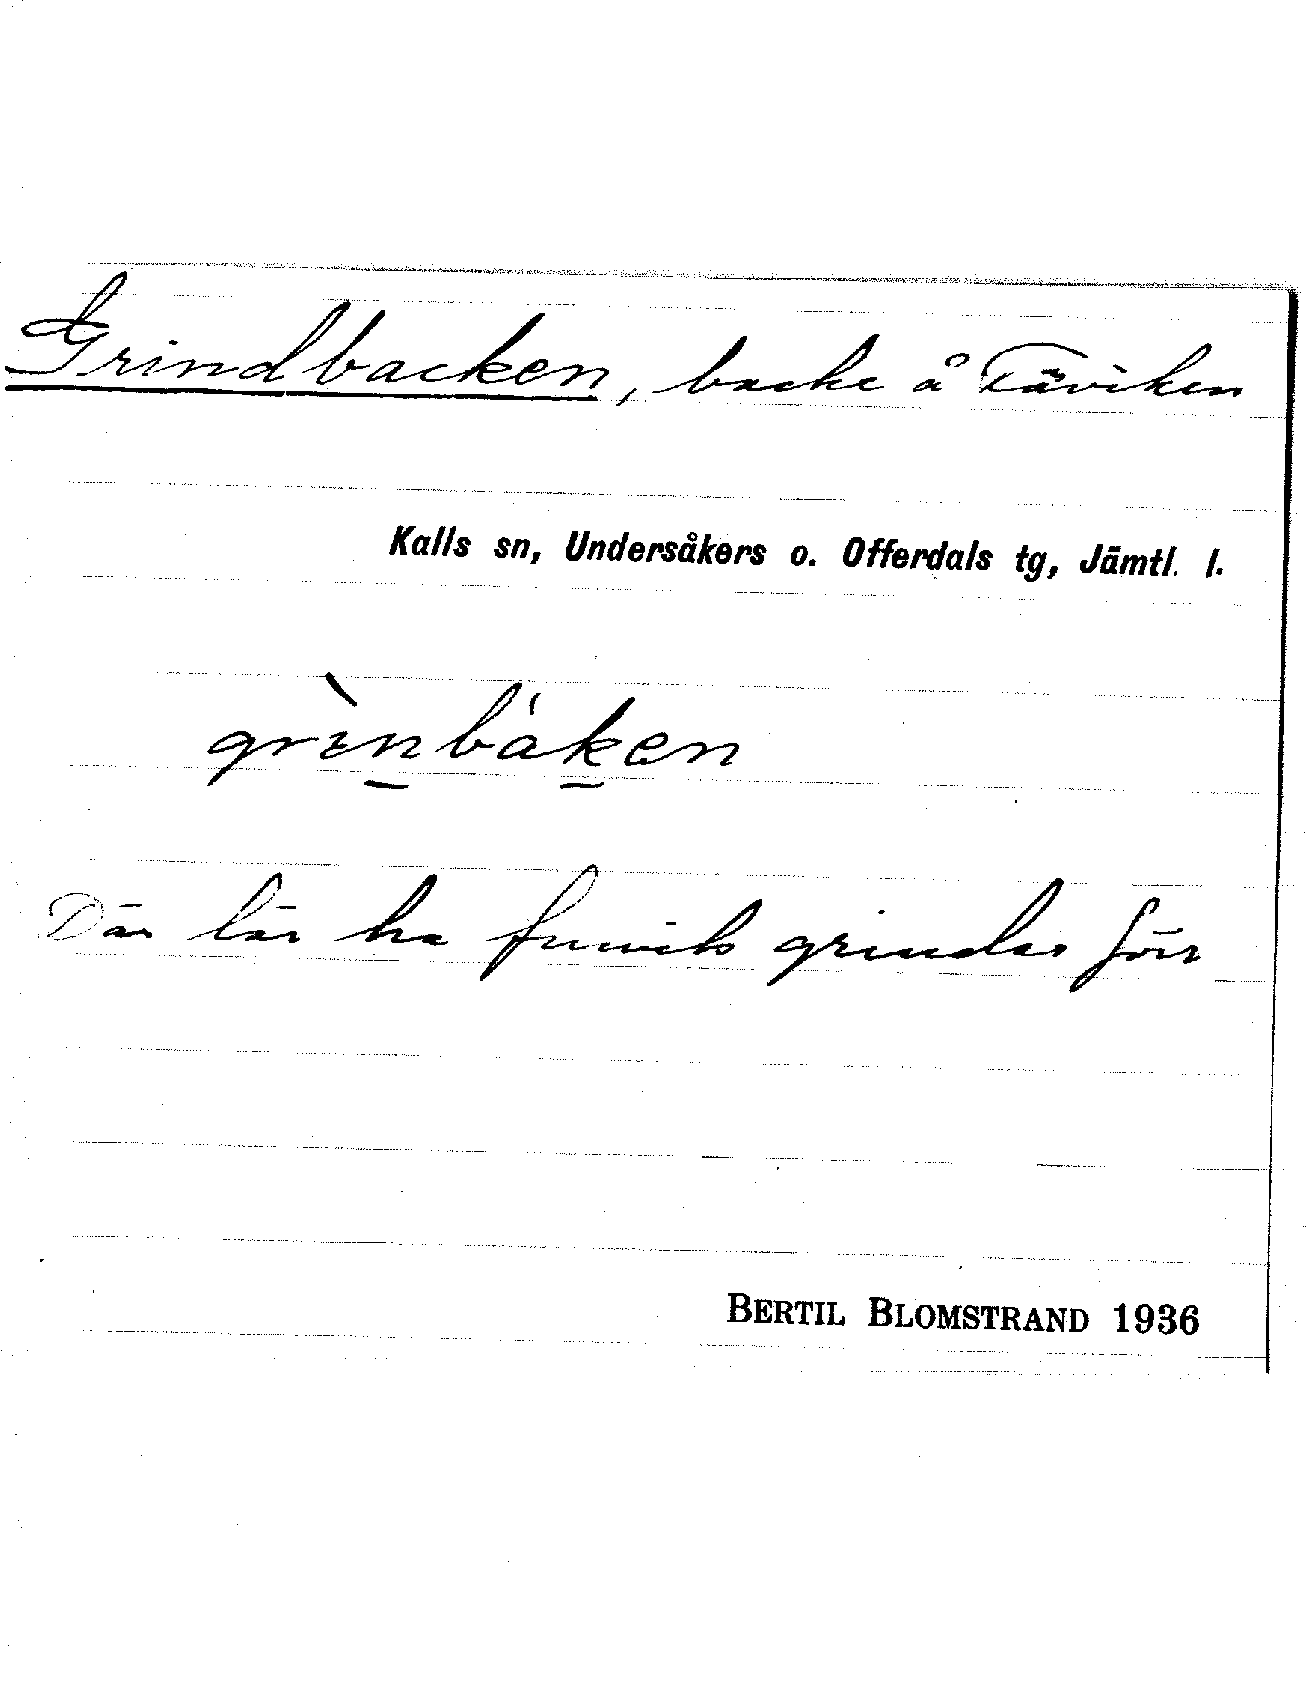 Grindbacken, backe å Täviken
Kalls sn, Undersåkers o. Offerdals tg, Jämtl. l.
grìnbáken
Där lär ha funnits grindar förr
BERTIL BLOMSTRAND 1936